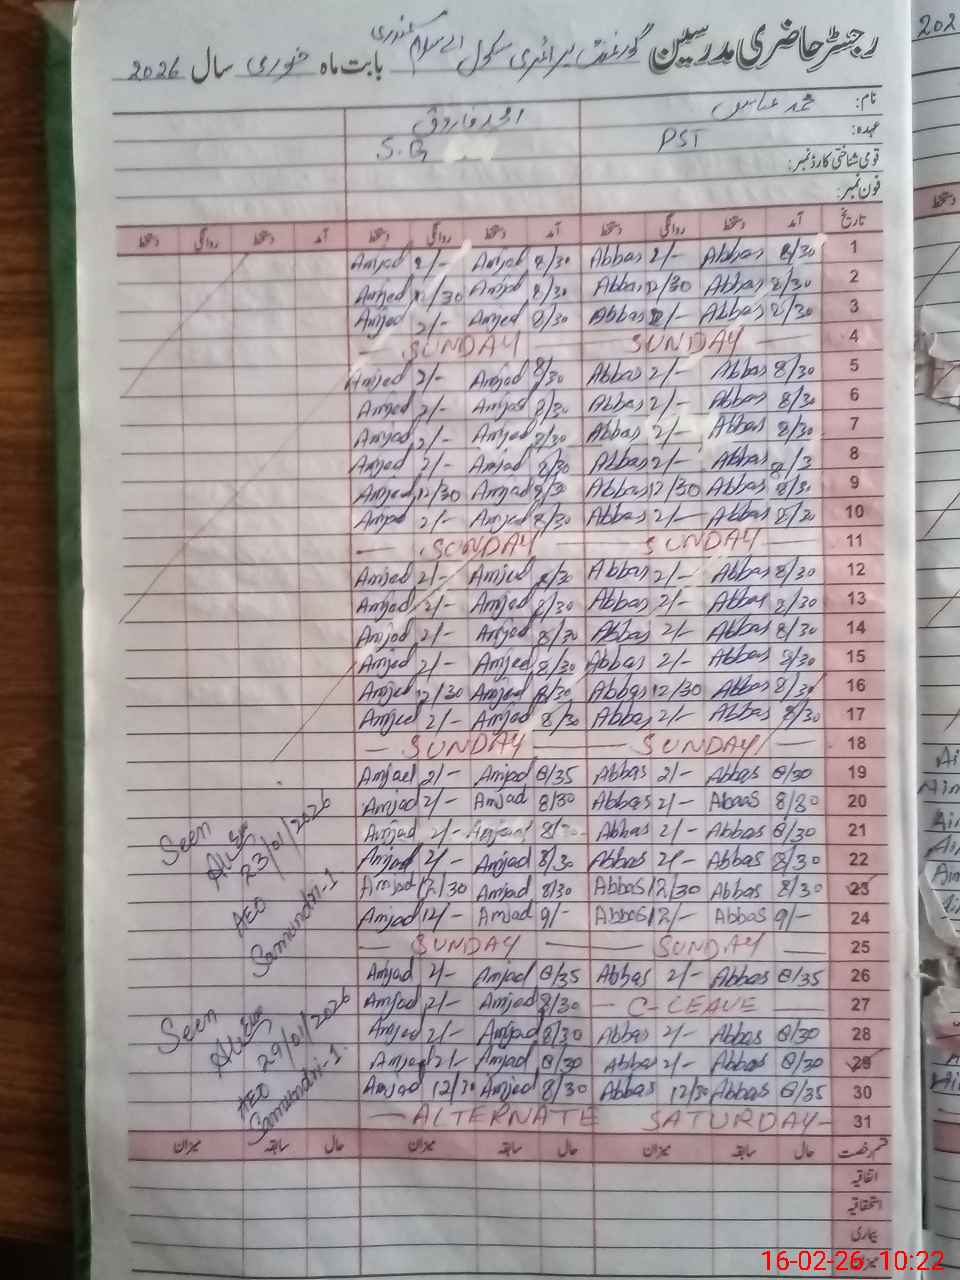 رجسٹر حاضری مدرسین گورنمنٹ پرائمری سکول بابت ماہ جنوری سال 2026
202
نام: محمد عباس امجد فاروق
عہدہ: PST S.G
قومی شناختی کارڈ نمبر:
فون نمبر:
تاریخ آمد دستخط روانگی دستخط آمد دستخط روانگی دستخط آمد دستخط روانگی دستخط
1 8/30 Abbas 2/- Abbas 8/30 Amjad 2/- Amjad
2 8/30 Abbas 12/30 Abbas 8/30 Amjad 12/30 Amjad
3 8/30 Abbas 2/- Abbas 8/30 Amjad 2/- Amjad
4 SUNDAY SUNDAY
5 8/30 Abbas 2/- Abbas 8/30 Amjad 2/- Amjad
6 8/30 Abbas 2/- Abbas 8/30 Amjad 2/- Amjad
7 8/30 Abbas 2/- Abbas 8/30 Amjad 2/- Amjad
8 8/3 Abbas 2/- Abbas 8/30 Amjad 2/- Amjad
9 8/30 Abbas 12/30 Abbas 8/30 Amjad 12/30 Amjad
10 8/30 Abbas 2/- Abbas 8/30 Amjad 2/- Amjad
11 SUNDAY SUNDAY
12 8/30 Abbas 2/- Abbas 8/30 Amjad 2/- Amjad
13 8/30 Abbas 2/- Abbas 8/30 Amjad 2/- Amjad
14 8/30 Abbas 2/- Abbas 8/30 Amjad 2/- Amjad
15 8/30 Abbas 2/- Abbas 8/30 Amjad 2/- Amjad
16 8/30 Abbas 12/30 Abbas 8/30 Amjad 12/30 Amjad
17 8/30 Abbas 2/- Abbas 8/30 Amjad 2/- Amjad
18 SUNDAY SUNDAY
19 8/30 Abbas 2/- Abbas 8/35 Amjad 2/- Amjad
20 8/30 Abbas 2/- Abbas 8/30 Amjad 2/- Amjad
21 8/30 Abbas 2/- Abbas 8/30 Amjad 2/- Amjad
22 8/30 Abbas 2/- Abbas 8/30 Amjad 2/- Amjad
23 8/30 Abbas 12/30 Abbas 8/30 Amjad 12/30 Amjad
24 9/- Abbas 12/- Abbas 9/- Amjad 12/- Amjad
25 SUNDAY SUNDAY
26 8/35 Abbas 2/- Abbas 8/35 Amjad 2/- Amjad
27 C-LEAVE 8/30 Amjad 2/- Amjad
28 8/30 Abbas 2/- Abbas 8/30 Amjad 2/- Amjad
29 8/30 Abbas 2/- Abbas 8/30 Amjad 2/- Amjad
30 8/35 Abbas 12/30 Abbas 8/30 Amjad 12/30 Amjad
31 ALTERNATE SATURDAY
Seen
23/01/2026
AEO
Samundri-1
Seen
29/01/2026
AEO
Samundri-1.
قسم رخصت حال سابقہ میزان حال سابقہ میزان حال سابقہ میزان
اتفاقیہ
استحقاقیہ
بیماری
میزان
16-02-26, 10:22